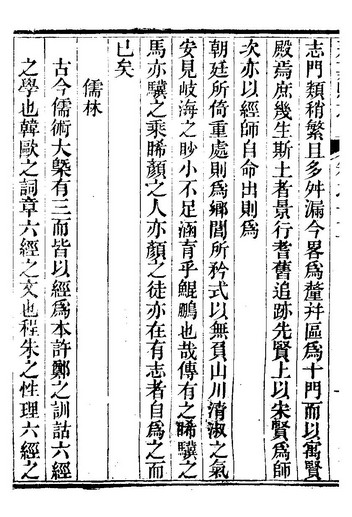 志門類稍繁且多舛漏今畧爲釐幷區爲十門而以寓賢
殿焉庶幾生斯土者景行耆舊追跡先賢上以宋賢爲師
次亦以經師自命出則爲
朝廷所倚重處則爲鄉閭所矜式以無負山川清淑之氣
安見岐海之眇小不足涵育乎鯤鵬也哉傳有之睎驥之
馬亦驥之乘睎顏之人亦顏之徒亦在有志者自爲之而
已矣
儒林
古今儒術大槩有三而皆以經爲本許鄭之訓詁六經
之學也韓歐之詞章六經之文也程朱之性理六經之